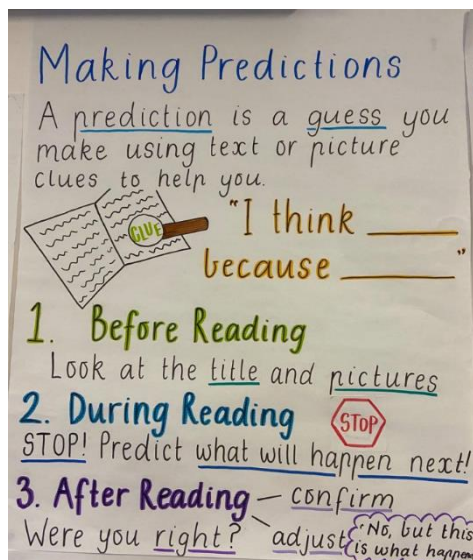 Making Predictions
A prediction is a guess you
make using text or picture
clues to help you.
CLUE
"I think ______
because ______"
1. Before Reading
Look at the title and pictures
2. During Reading STOP
STOP! Predict what will happen next!
3. After Reading – confirm
Were you right? adjust "No, but this
is what happen